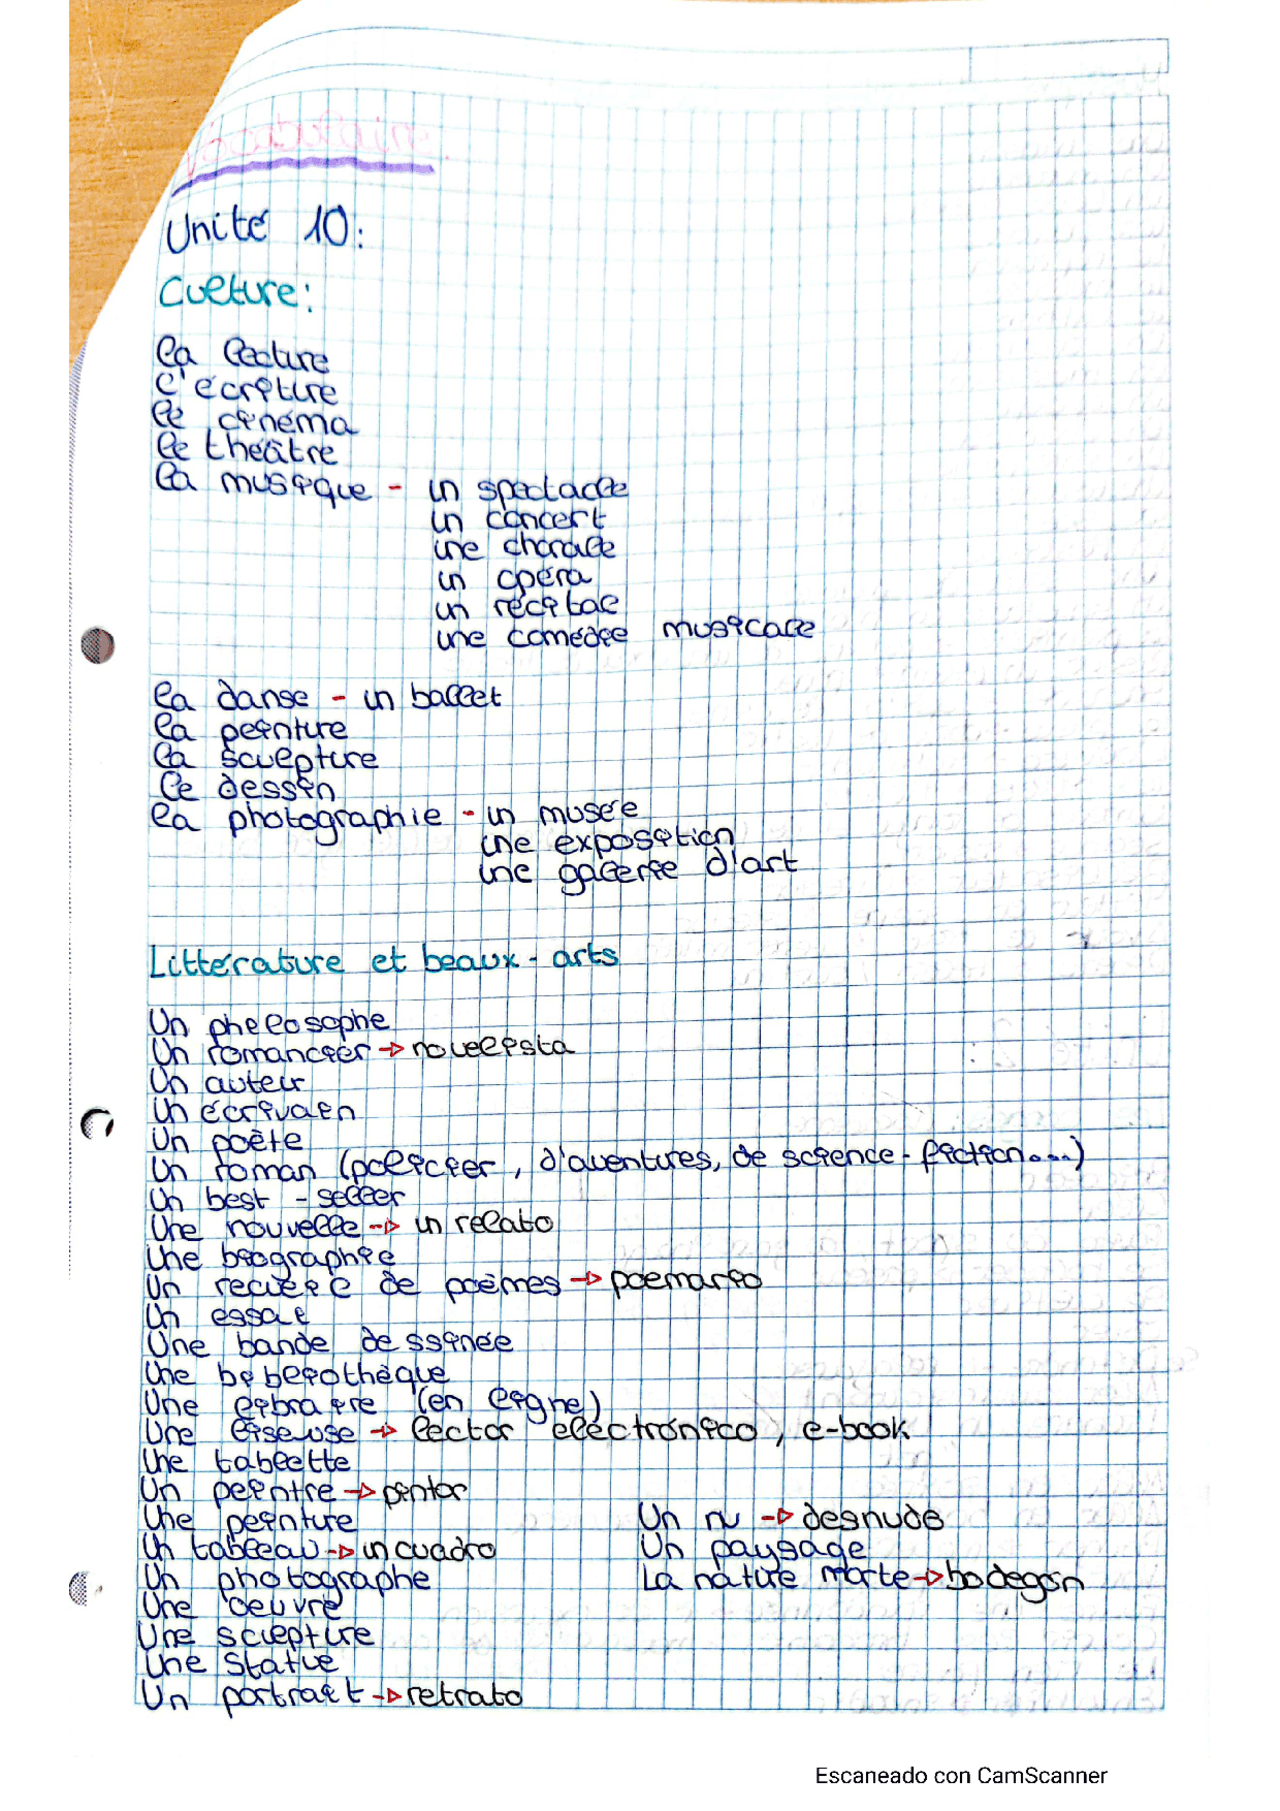 Unité 10:
Culture:
la lecture
l'écriture
le cinéma
le théâtre
la musique - un spectacle
un concert
une chorale
un opéra
un récital
une comédie musicale
la danse - un ballet
la peinture
la sculpture
le dessin
la photographie - un musée
une exposition
une galerie d'art
Littérature et beaux-arts
Un philosophe
Un romancier → novelista
Un auteur
Un écrivain
Un poète
Un roman (policier, d'aventures, de science-fiction...)
Un best-seller
Une nouvelle → un relato
Une biographie
Un recueil de poèmes → poemario
Un essai
Une bande dessinée
Une bibliothèque
Une librairie (en ligne)
Une liseuse → lector electrónico, e-book
Une tablette
Un peintre → pintor
Une peinture
Un tableau → un cuadro
Un photographe
Une oeuvre
Une sculpture
Une statue
Un portrait → retrato
Un nu → desnudo
Un paysage
La nature morte → bodegón
Escaneado con CamScanner